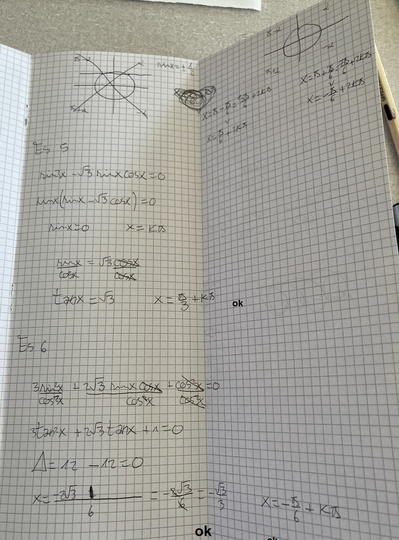 sin x = ± 1/2
x = π - π/6 = 5π/6 + 2kπ
x = π/6 + 2kπ
x = π + π/6 = 7π/6 + 2kπ
x = -π/6 + 2kπ
Es 5
sin²x - √3 sinx cosx = 0
sinx(sinx - √3 cosx) = 0
sinx = 0 x = kπ
sinx/cosx = √3 cosx/cosx
tanx = √3 x = π/3 + kπ ok
Es 6
3sin²x/cos²x + 2√3 sinx cosx/cos²x + cos²x/cos²x = 0
3tan²x + 2√3 tanx + 1 = 0
Δ = 12 - 12 = 0
x = -2√3/6 = -2√3/6 = -√3/3 x = -π/6 + kπ
ok